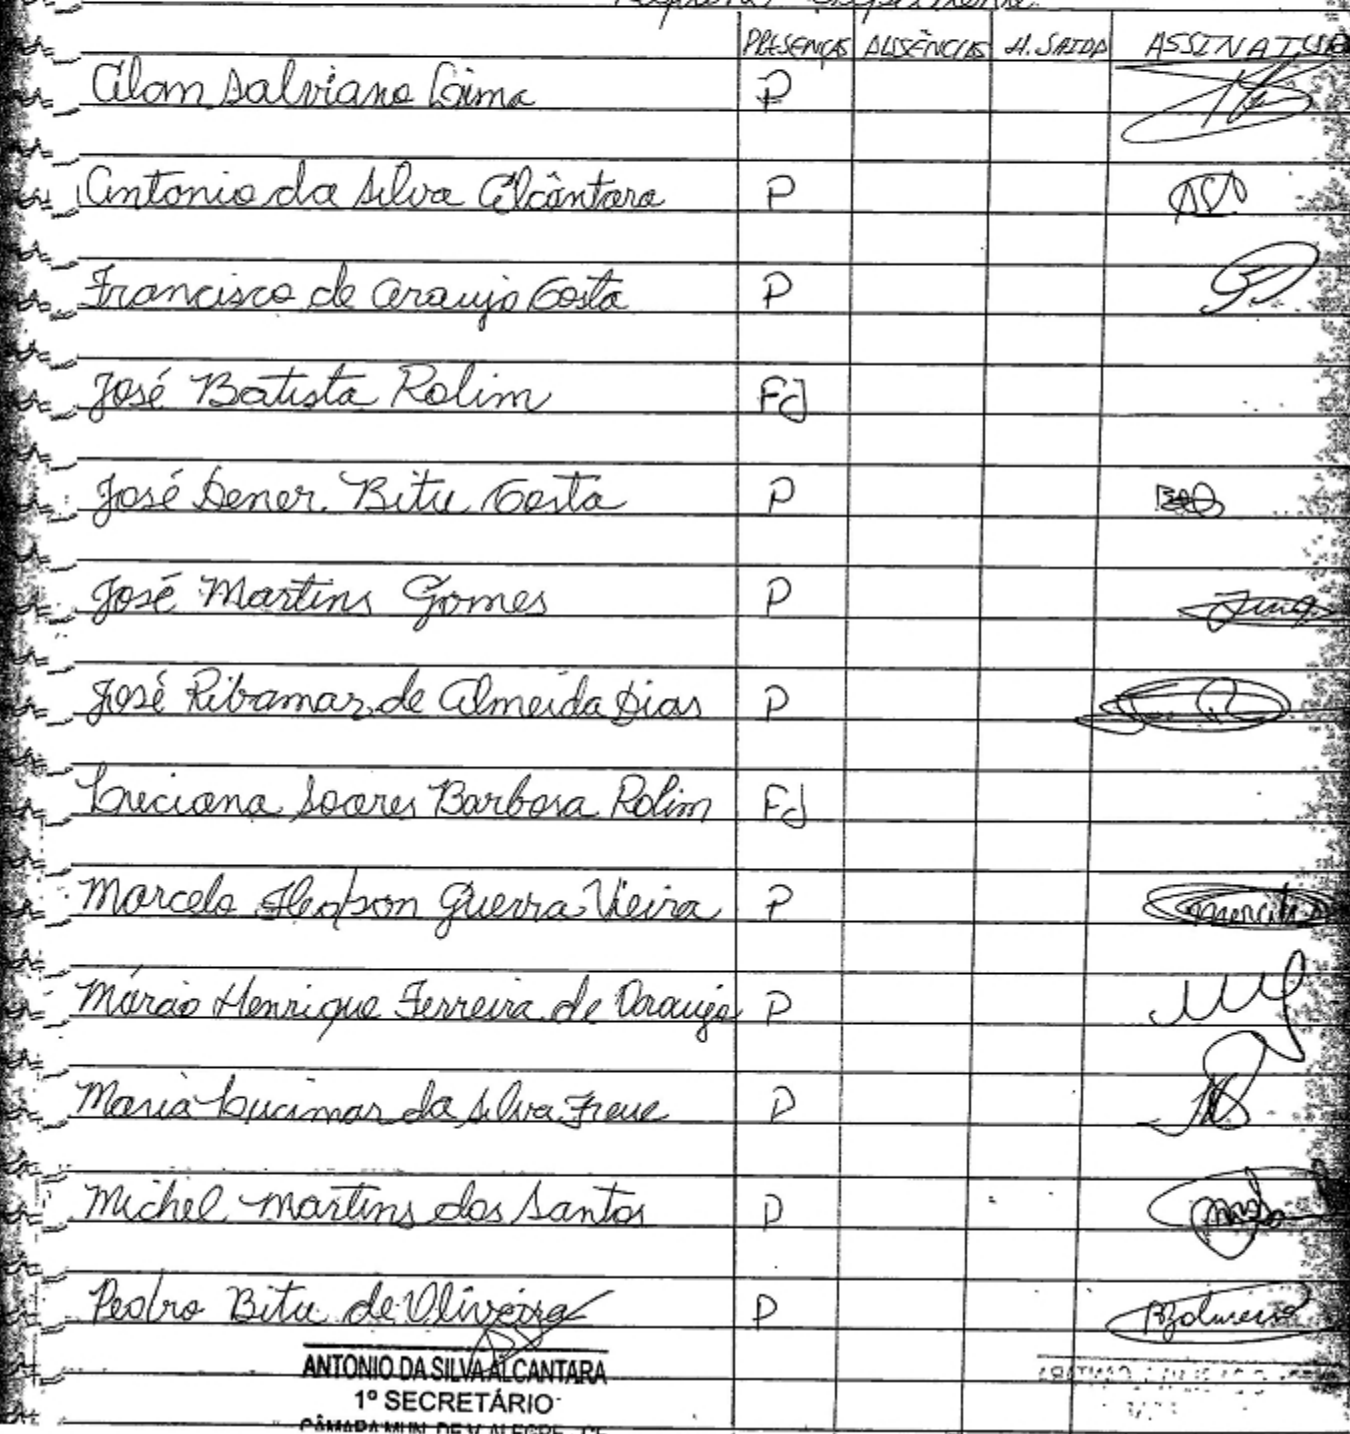 PRESENÇAS AUSÊNCIAS H. SAIDA ASSINATURA
Alan Salviano Lima P
Antonio da Silva Alcântara P
Francisco de Araujo Costa P
José Batista Rolim FJ
José Dener Bitu Costa P
José Martins Gomes P
José Ribamar de Almeida Dias P
Luciana Soares Barbosa Rolim FJ
Marcelo Guerra Vieira P
Márcio Henrique Ferreira de Araujo P
Maria Lucimar da Silva Freire P
Michel Martins dos Santos P
Pedro Bitu de Oliveira P
ANTONIO DA SILVA ALCANTARA
1º SECRETÁRIO
CÂMARA MUN. DE V. ALEGRE - CE